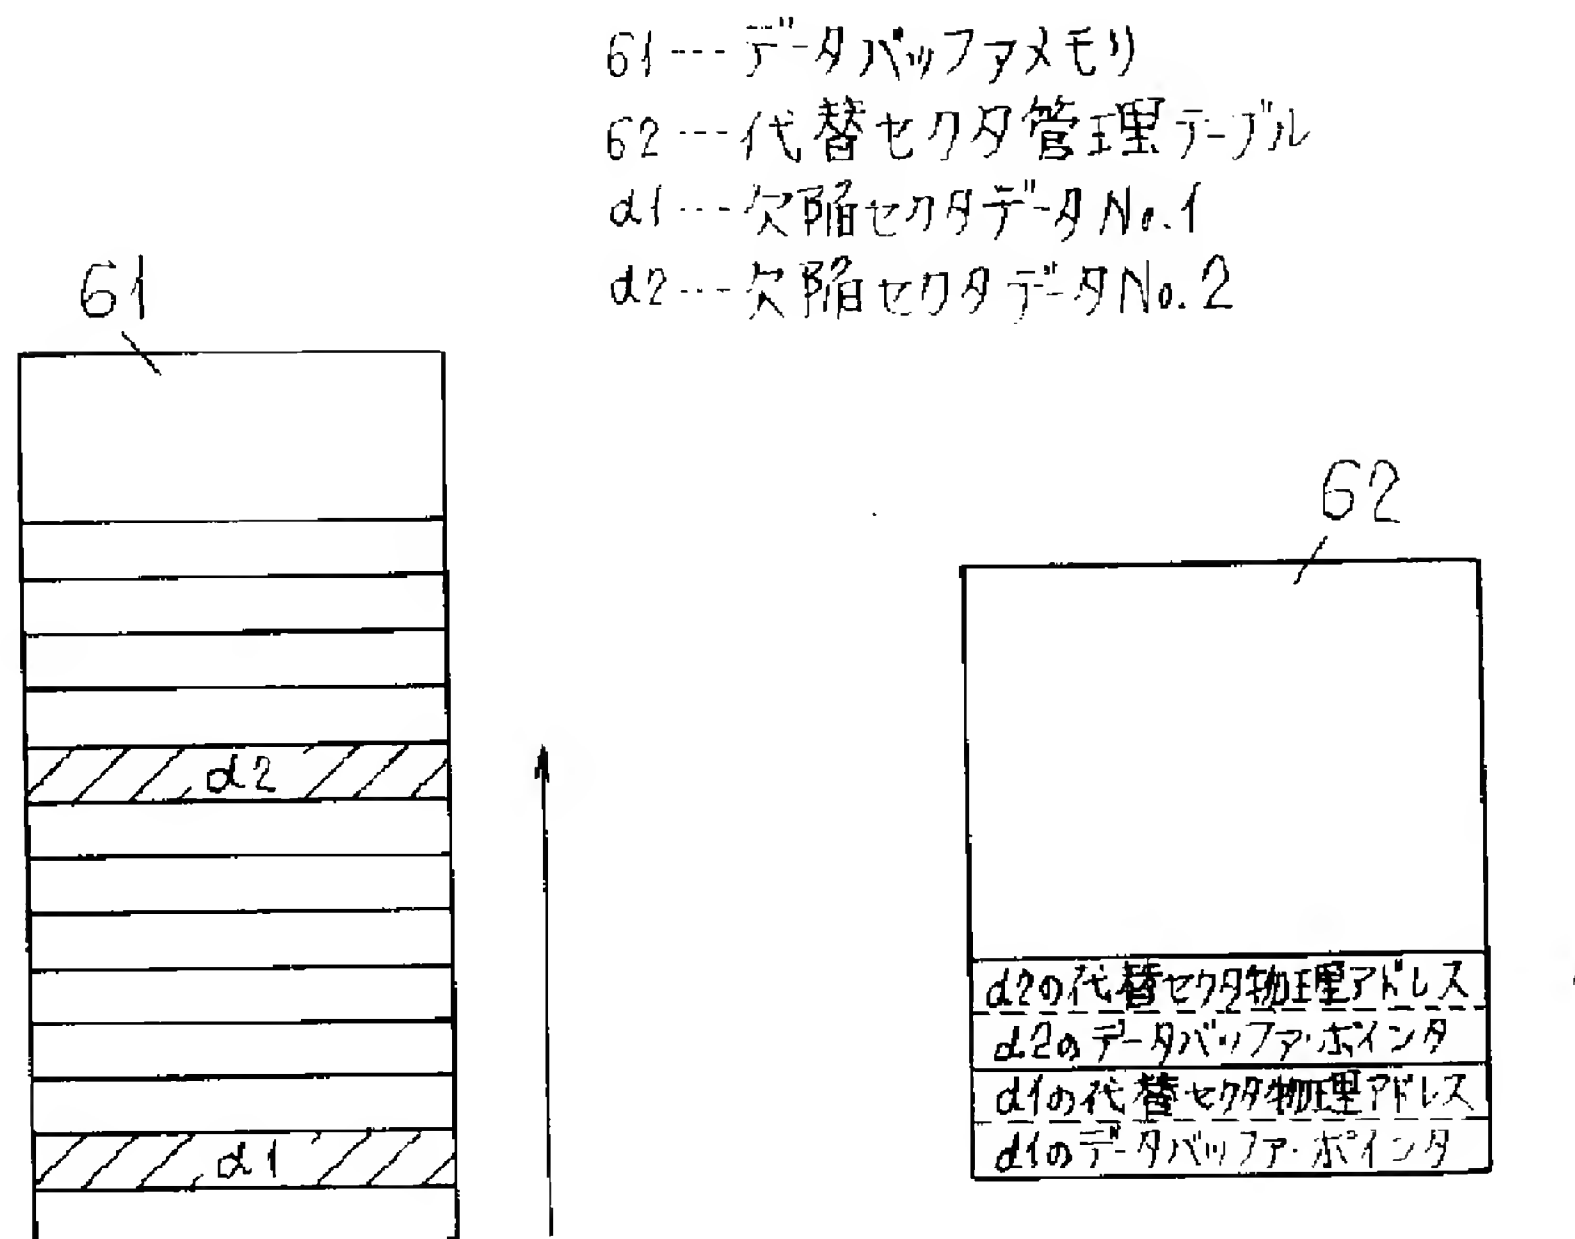 61…データバッファメモリ
62…代替セクタ管理テーブル
d1…欠陥セクタデータNo.1
d2…欠陥セクタデータNo.2
61
62
d2
d1
d2の代替セクタ物理アドレス
d2のデータバッファ・ポインタ
d1の代替セクタ物理アドレス
d1のデータバッファ・ポインタ